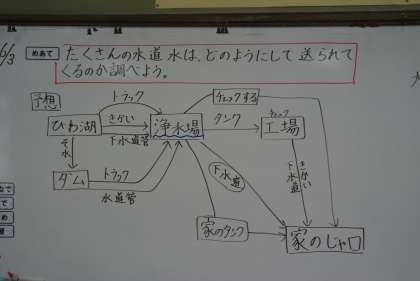 6/3
めあて
たくさんの水道水は、どのようにして送られて
くるのか調べよう。
予想
トラック
チェックする
びわ湖
きかい
下水道管
浄水場
タンク
チェック
工場
そ水
ダム
トラック
水道管
下水道
下水道
きかい
家のタンク
家のじゃ口